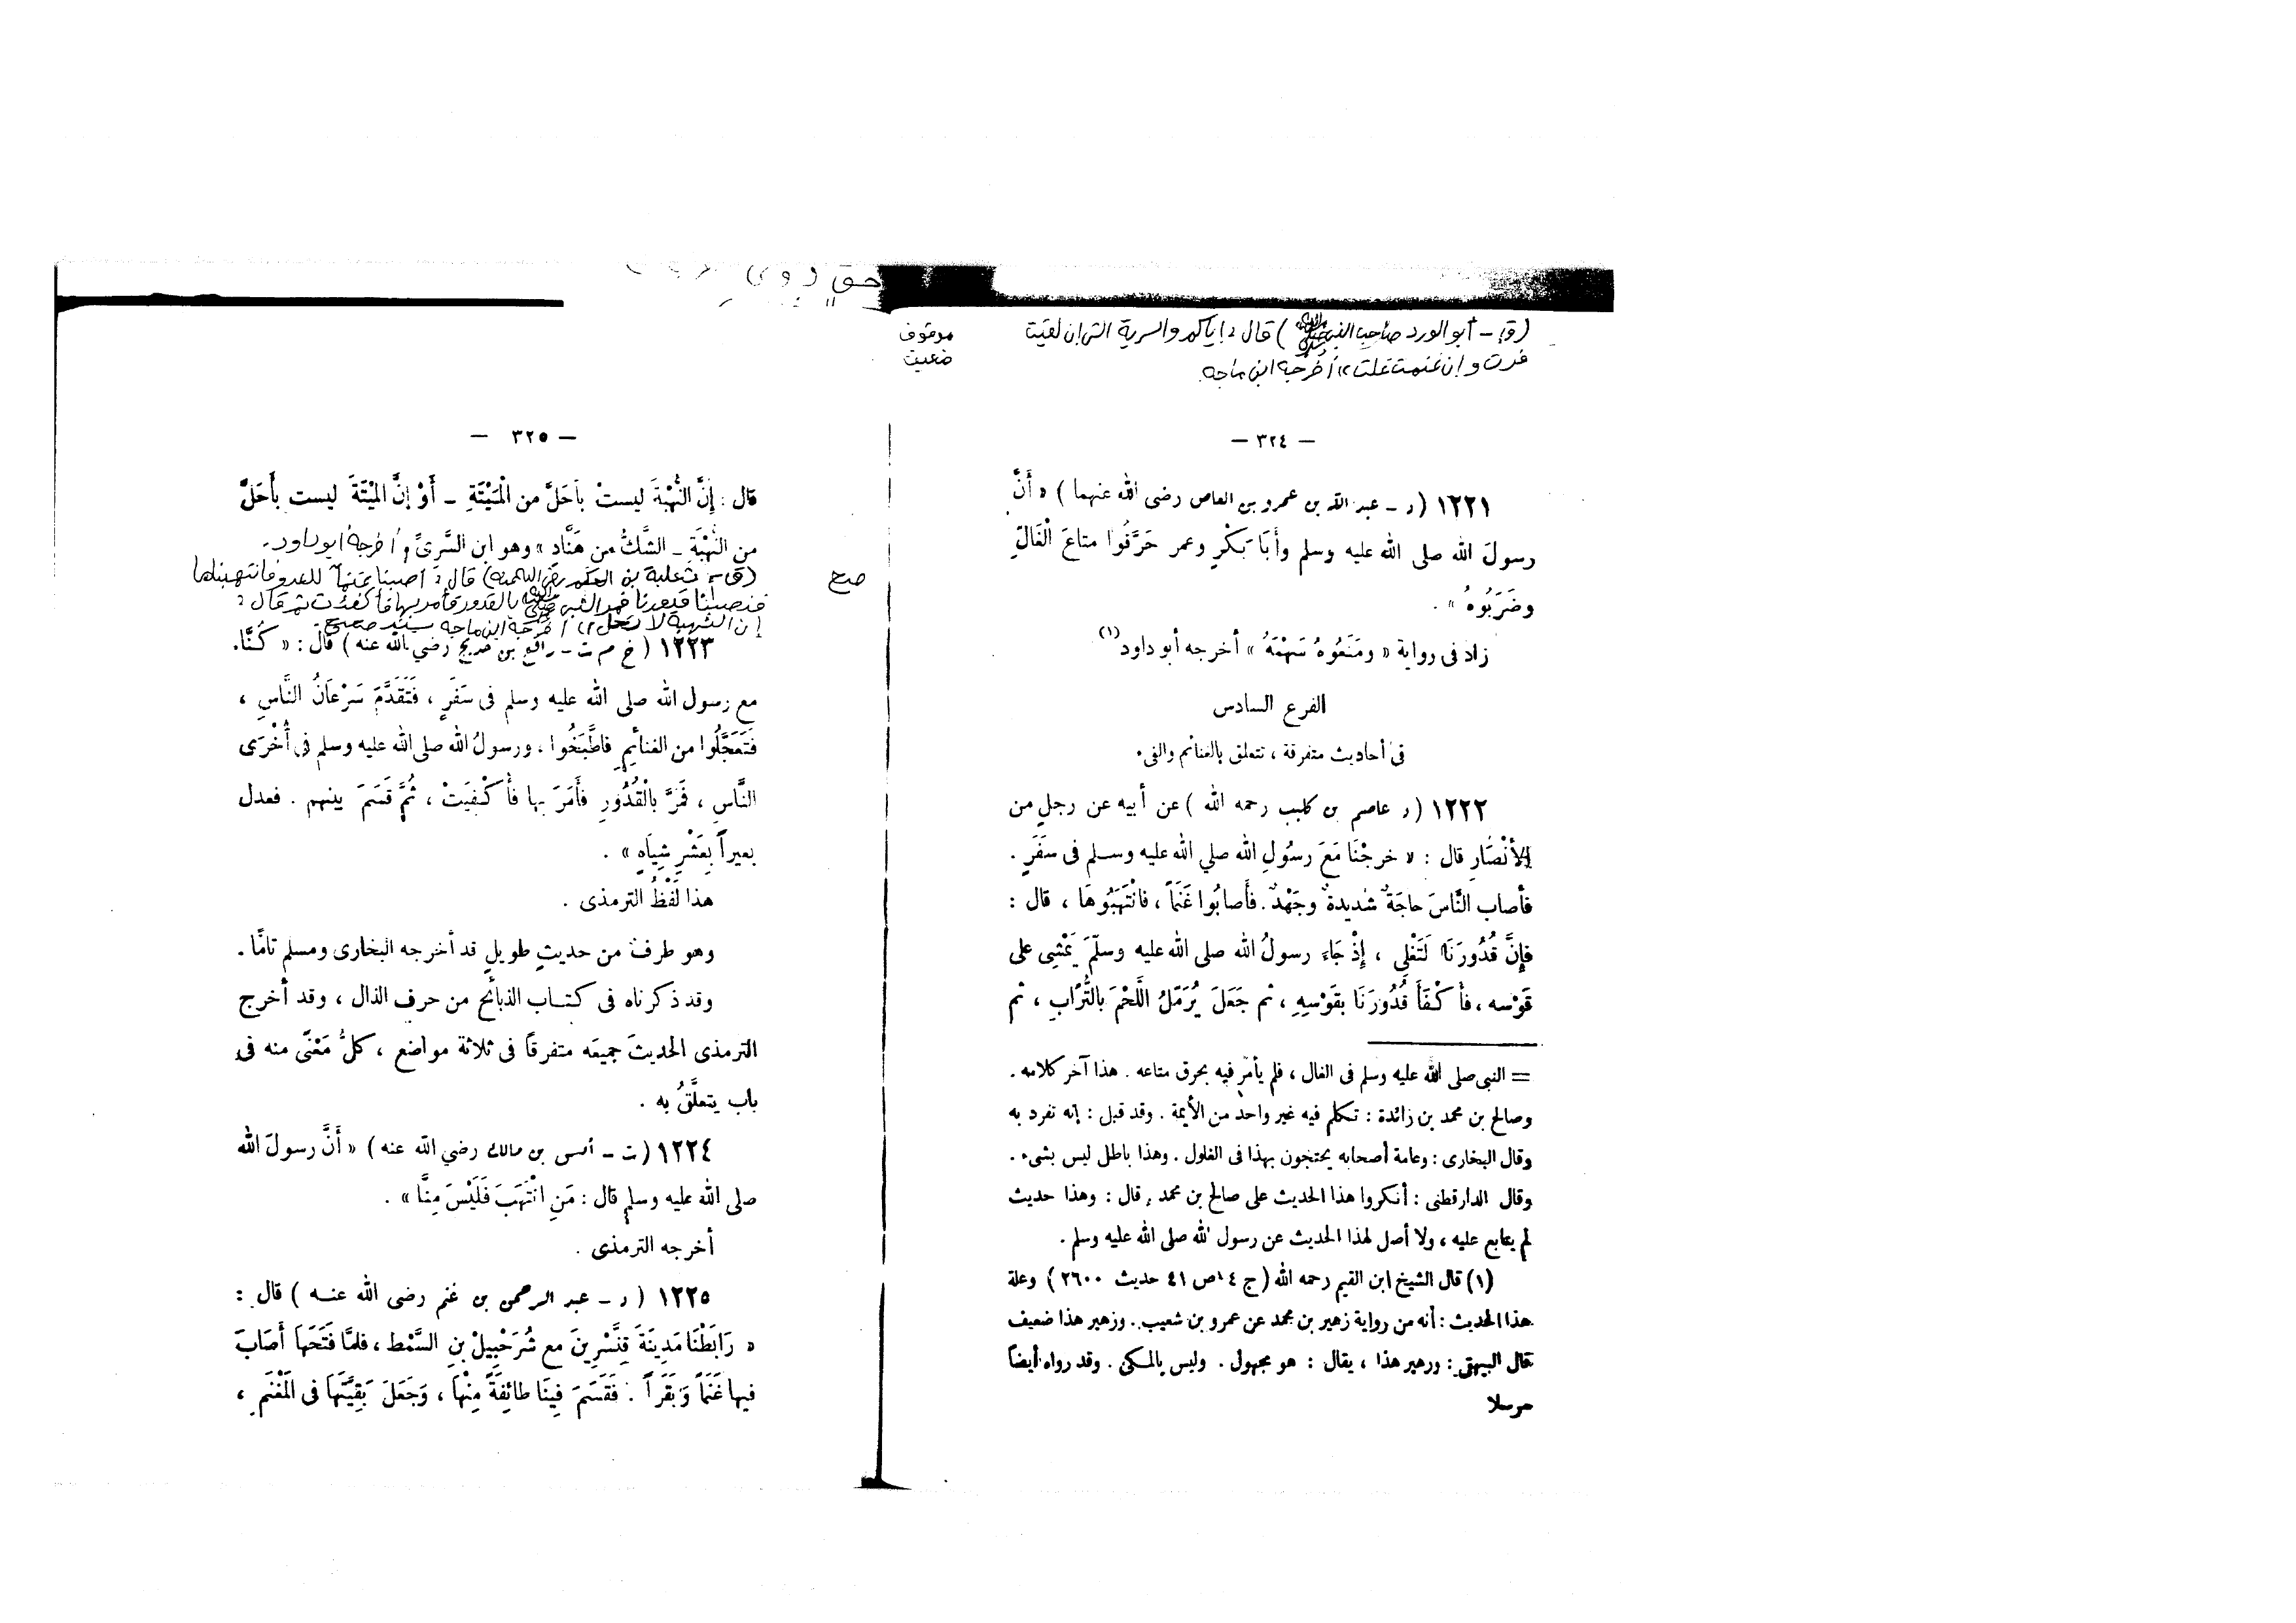 (ق - أبو الورد صاحب النبي ﷺ) قال: إياكم والسرية التي إن لقيت
فرت وإن غنمت غلت» أخرجه ابن ماجه.
موقوف
ضعيف
— ٣٢٤ —
١٢٢١ (د - عبد الله بن عمرو بن العاص رضى الله عنهما) « أَنَّ
رسولَ الله صلى الله عليه وسلم وأَبَا بَكْرٍ وعمر حَرَّقُوا متاعَ الْغَالِّ
وضَرَبُوهُ » .
زاد فى رواية « ومَنَعُوهُ سَهْمَهُ » أخرجه أبو داود (١)
الفرع السادس
فى أحاديث متفرقة ، تتعلق بالغنائم والفىء
١٢٢٢ (د عاصم بن كليب رحمه الله ) عن أبيه عن رجلٍ من
الأَنْصَارِ قال : « خرجْنَا مَعَ رسُولِ الله صلي الله عليه وسلم فى سَفَرٍ .
فأصاب النَّاسَ حاجَةٌ شديدةٌ وجَهْدٌ . فأَصابُوا غَنَماً ، فانْتَهَبُوهَا ، قال :
فإِنَّ قُدُورَنَا لَتَغْلِي ، إِذْ جَاءَ رسولُ الله صلى الله عليه وسلّمَ يَمْشِى على
قَوْسه ، فأَ كْفَأَ قُدُورَنَا بقَوْسِهِ ، ثم جَعَلَ يُرَمِّلُ اللَّحْمَ بالتُّرَابِ ، ثم
= النبى صلى الله عليه وسلم فى الغال ، فلم يأمر فيه بحرق متاعه . هذا آخر كلامه .
وصالح بن محمد بن زائدة : تكلم فيه غير واحد من الأيمة . وقد قيل : إنه تفرد به
وقال البخارى : وعامة أصحابه يحتجون بهذا فى الغلول . وهذا باطل ليس بشىء .
وقال الدارقطنى : أنكروا هذا الحديث على صالح بن محمد . قال : وهذا حديث
لم يتابع عليه ، ولا أصل لهذا الحديث عن رسول الله صلى الله عليه وسلم .
(١) قال الشيخ ابن القيم رحمه الله (ج ٤ ص ٤١ حديث ٢٦٠٠) وعلة
هذا الحديث : أنه من رواية زهير بن محمد عن عمرو بن شعيب . وزهير هذا ضعيف
قال البيهقى : وزهير هذا ، يقال : هو مجهول . وليس بالمكى . وقد رواه أيضاً
مرسلا
— ٣٢٥ —
قال : إِنَّ النُّهْبَةَ ليستْ بأَحَلَّ من الْمَيْتَةِ - أَوْ إِنَّ المَيْتَةَ ليست بأَحَلَّ
من النُّهْبَةِ - الشَّكُّ من هَنَّادٍ » وهو ابن السَّرِىِّ أخرجه أبو داود .
(ق - ثعلبة بن الحكم رضي الله عنه) قال: أصبنا غنماً للعدو فانتهبناها
فنصبنا قدورنا فمر النبي ﷺ بالقدور فأمر بها فأكفئت ثم قال:
إن النهبة لا تحل» أخرجه ابن ماجه بسند صحيح.
صح
١٢٢٣ (خ م ت - رافع بن خديج رضي الله عنه) قال : « كُنَّا
مع رسول الله صلى الله عليه وسلم فى سَفَرٍ ، فَتَقَدَّمَ سَرْعَانُ النَّاسِ ،
فَتَعَجَّلُوا من الغنائمِ فاطَّبَخُوا ، ورسولُ الله صلى الله عليه وسلم فى أُخْرَى
النَّاسِ ، فَمَرَّ بالْقُدُورِ فأَمَرَ بها فأُ كْفِيَتْ ، ثُمَّ قَسَمَ بينهم . فعدل
بعيراً بِعَشْرِ شِيَاهٍ » .
هذا لَفْظُ الترمذى .
وهو طرف من حديثٍ طويلٍ قد أخرجه البخارى ومسلم تامًّا .
وقد ذكرناه فى كتاب الذبائح من حرف الذال ، وقد أخرج
الترمذى الحديثَ جميعَه متفرقاً فى ثلاثة مواضع ، كلُّ مَعْنًى منه فى
باب يتعلَّقُ به .
١٢٢٤ (ت - أنس بن مالك رضي الله عنه ) « أَنَّ رسولَ الله
صلى الله عليه وسلم قال : مَنِ انْتَهَبَ فَلَيْسَ مِنَّا » .
أخرجه الترمذى .
١٢٢٥ ( د - عبد الرحمن بن غنم رضى الله عنه ) قال :
« رَابَطْنَا مَدِينَةَ قِنَّسْرِينَ مع شُرَحْبِيلَ بنِ السَّمْط ، فلمَّا فَتَحَهَا أَصَابَ
فيها غَنَماً وَبَقَراً . فَقَسَمَ فِينَا طائِفَةً مِنْهَا ، وَجَعَلَ بَقِيَّتَهَا فى المَغْنَمِ ،